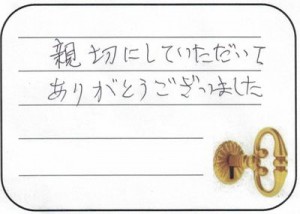 親切にしていただいて
ありがとうございました